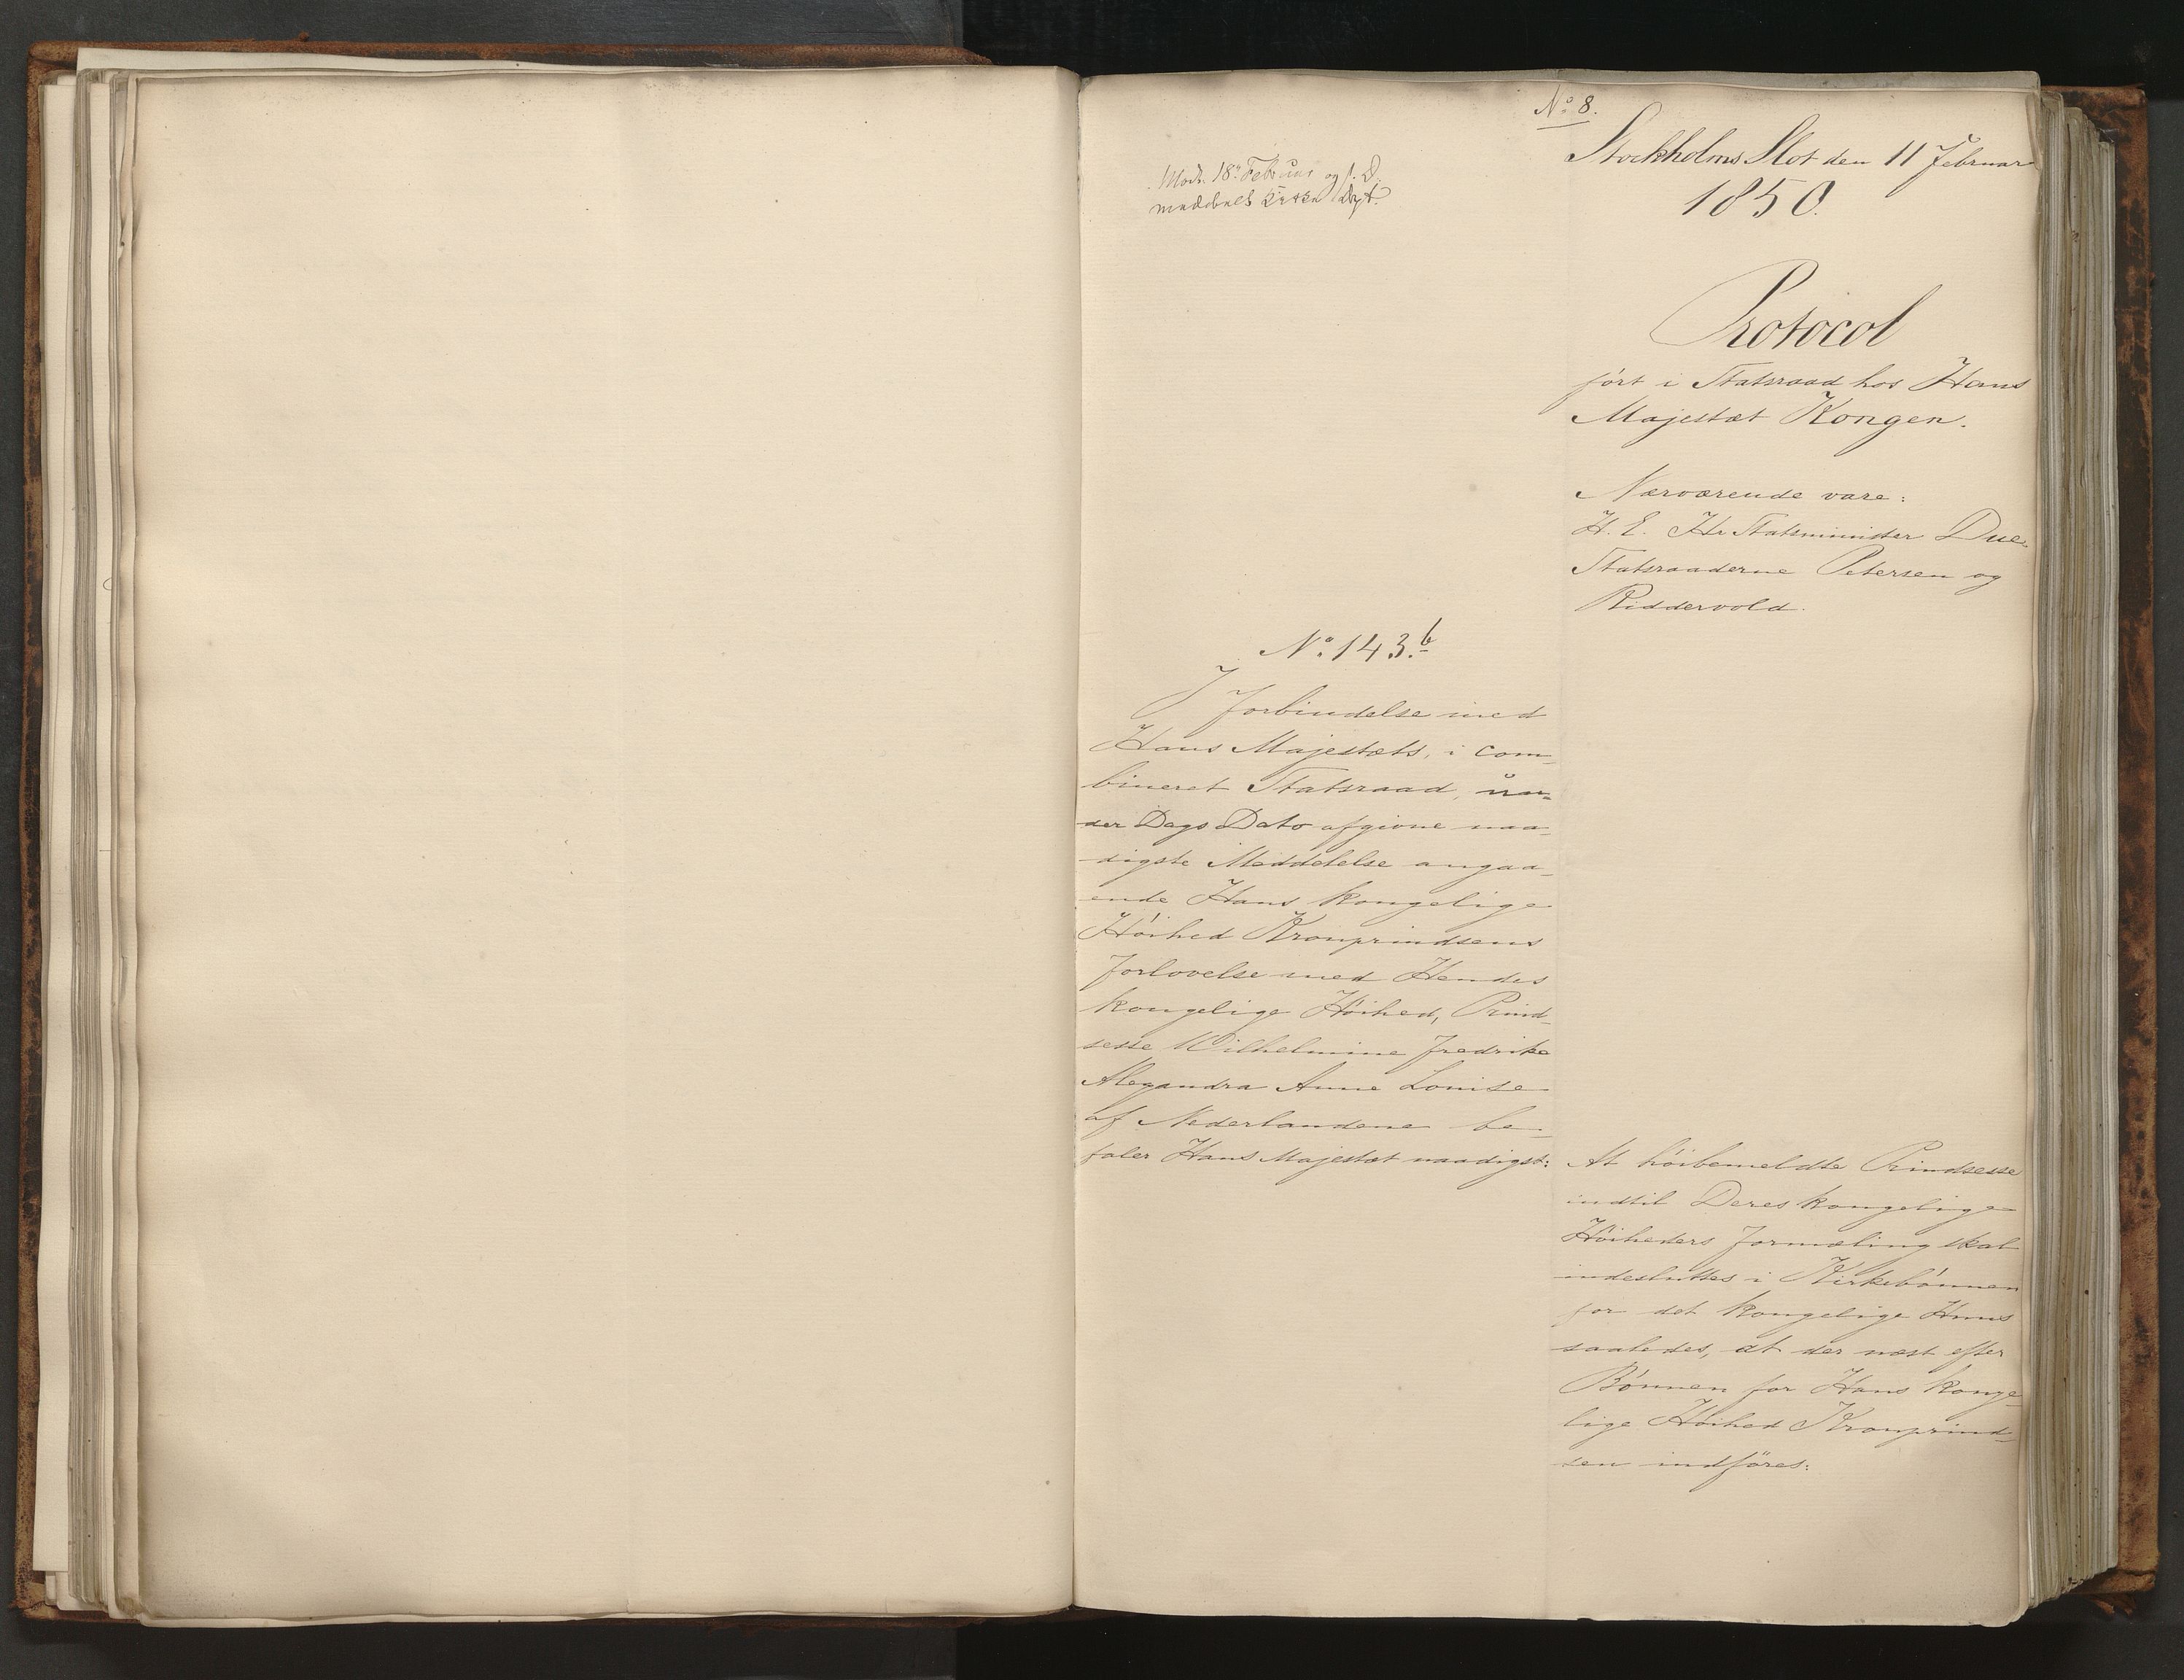 No 8.
Stockholms Slot den 11 Februar
1850.
Modt. 18de Februar og s. D.
meddeelt Kirke Dept.
Protocol
ført i Statsraad hos Hans
Majestæt Kongen.
Nærværende vare:
H. E. Hr Statsminister Due.
Statsraaderne Petersen og
Riddervold.
No 143.b
I Forbindelse med
Hans Majestæts, i com-
bineret Statsraad, un-
der Dags Dato afgivne naa-
digste Meddelelse angaa-
ende Hans Kongelige
Høihed Kronprindsens
Forlovelse med Hendes
Kongelige Høihed, Prind-
sesse Wilhelmine Fredrike
Alexandra Anne Louise
af Nederlandene be-
faler Hans Majestæt naadigst:
At høibemeldte Prindsesse
indtil Deres Kongelige
Høiheders Formæling skal
indesluttes i Kirkebønnen
for det Kongelige Huus
saaledes, at der næst efter
Bønnen for Hans Konge-
lige Høihed Kronprind-
sen indføres: